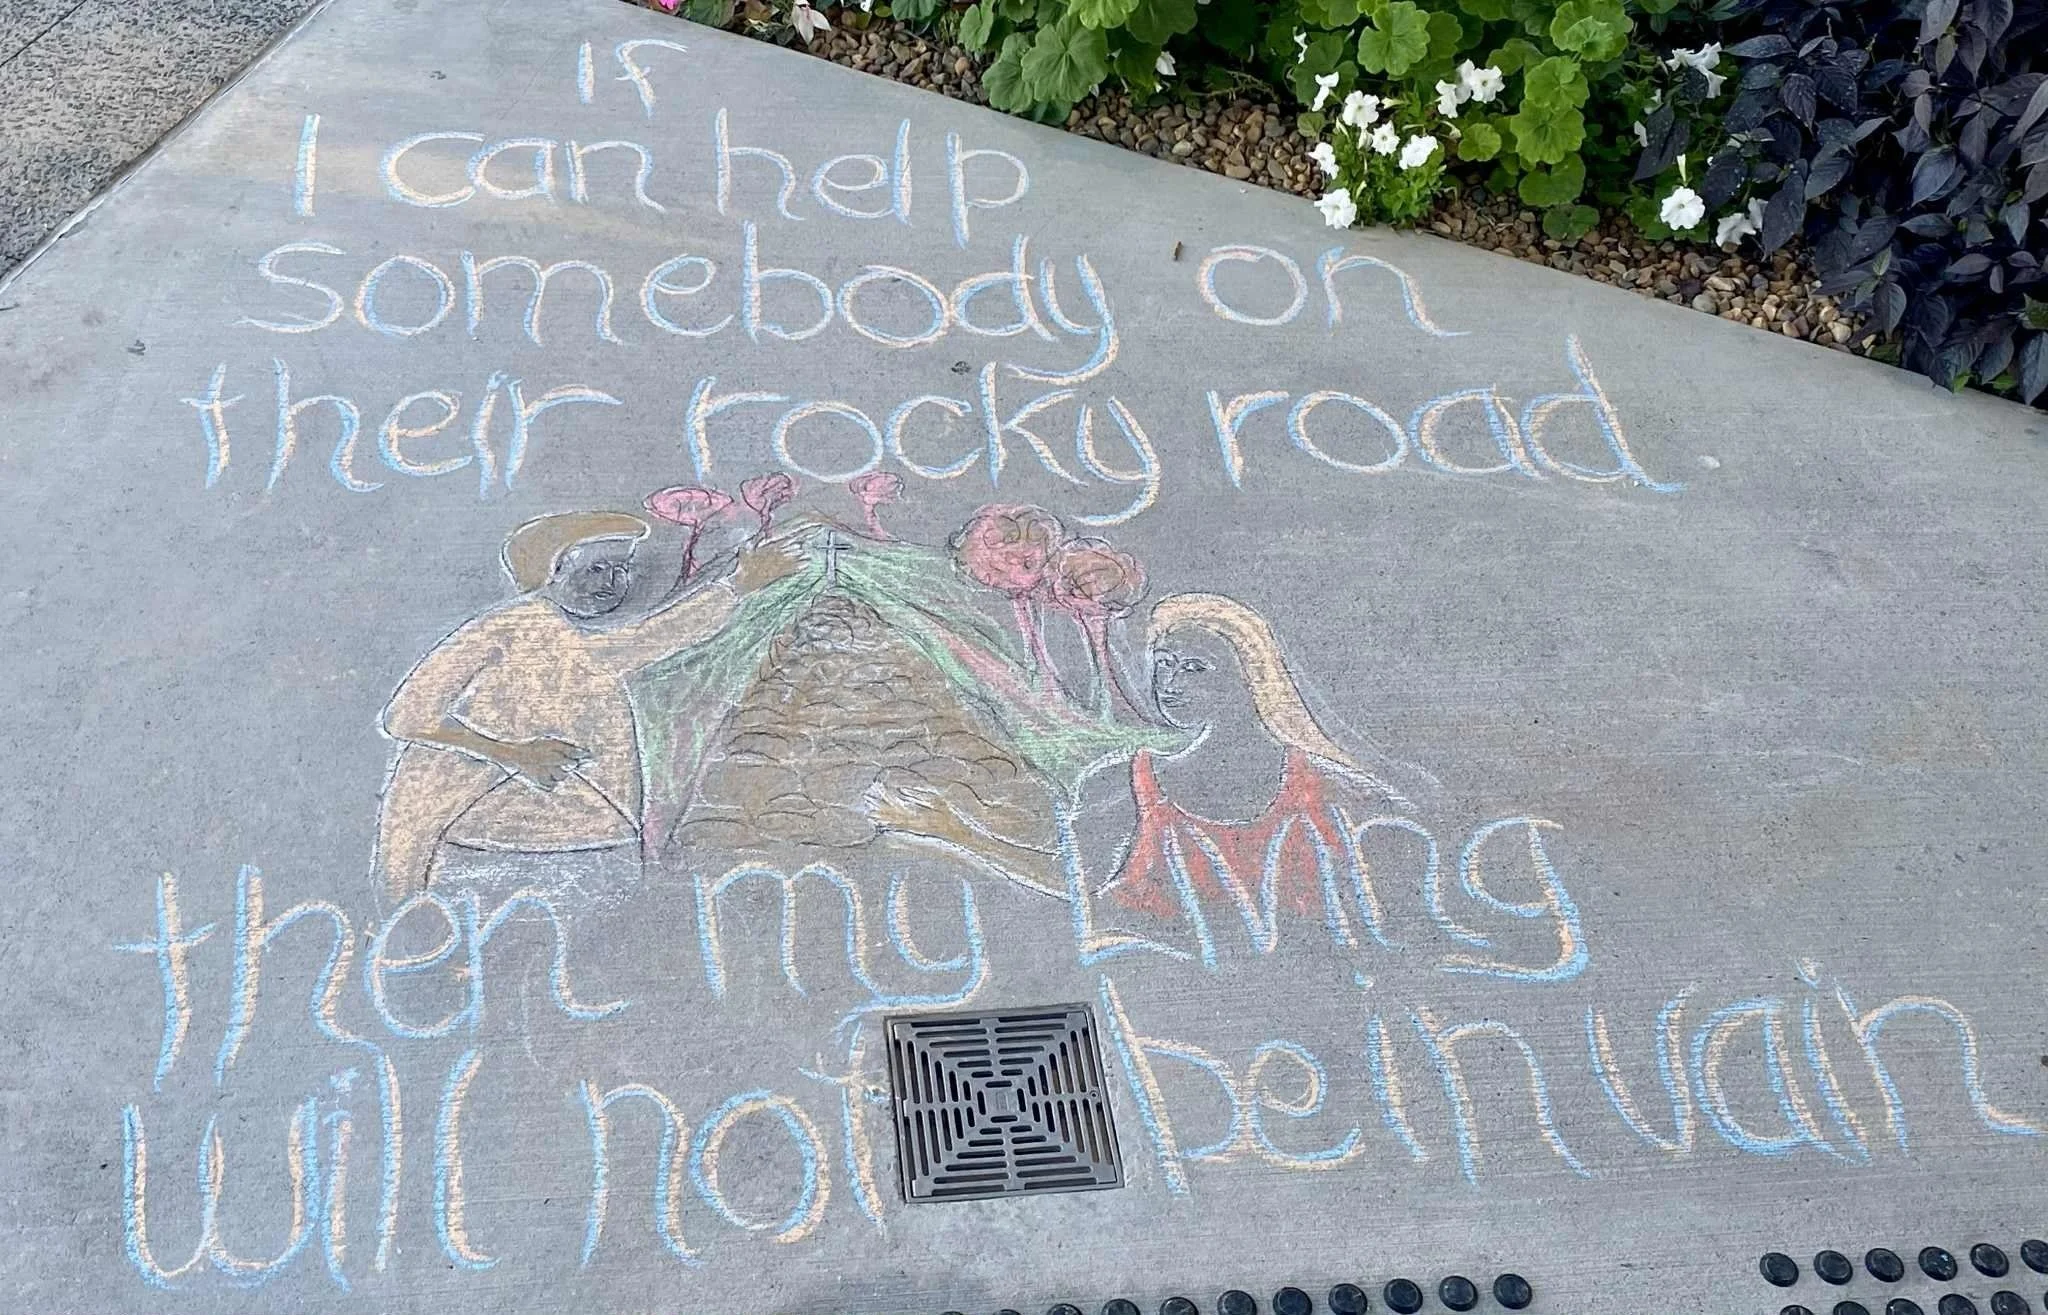 If
I can help
somebody on
their rocky road.
then my Living
will not be in vain